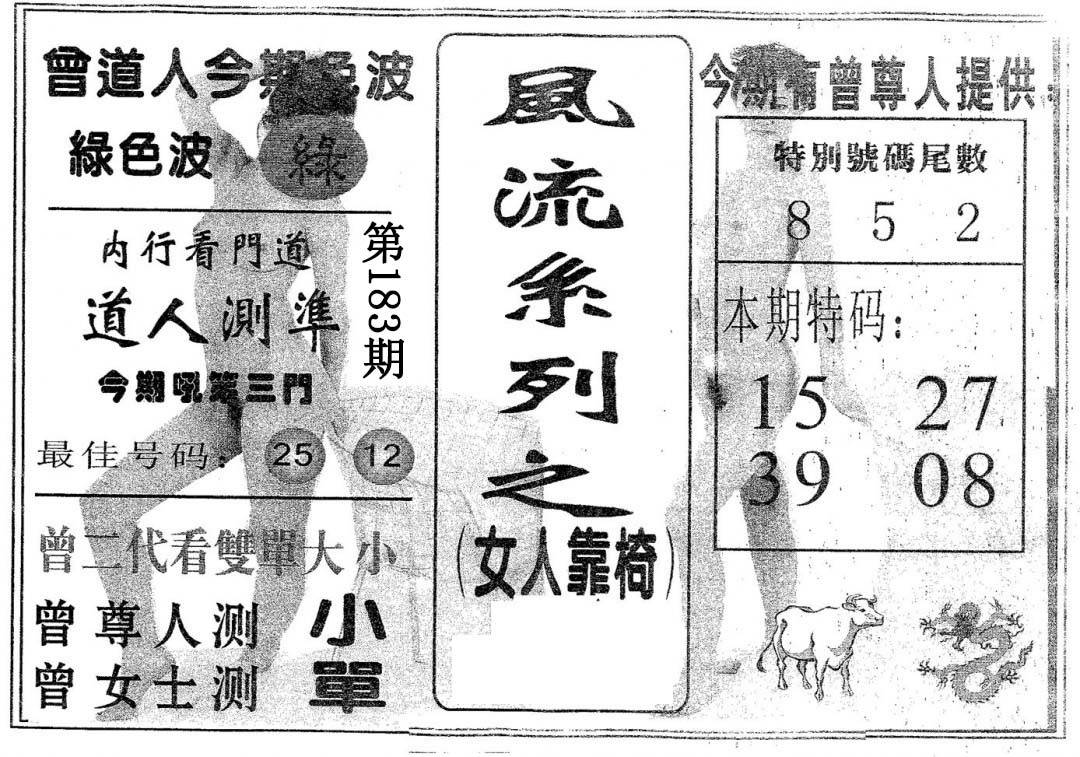 曾道人今期色波
綠色波 綠
内行看門道
道人測準
今期吼第三門
最佳号码: 25 12
第183期
曾二代看雙單大小
曾尊人测 小
曾女士测 單
風流系列之
(女人靠椅)
今期有曾尊人提供:
特別號碼尾數
8 5 2
本期特码:
15 27
39 08